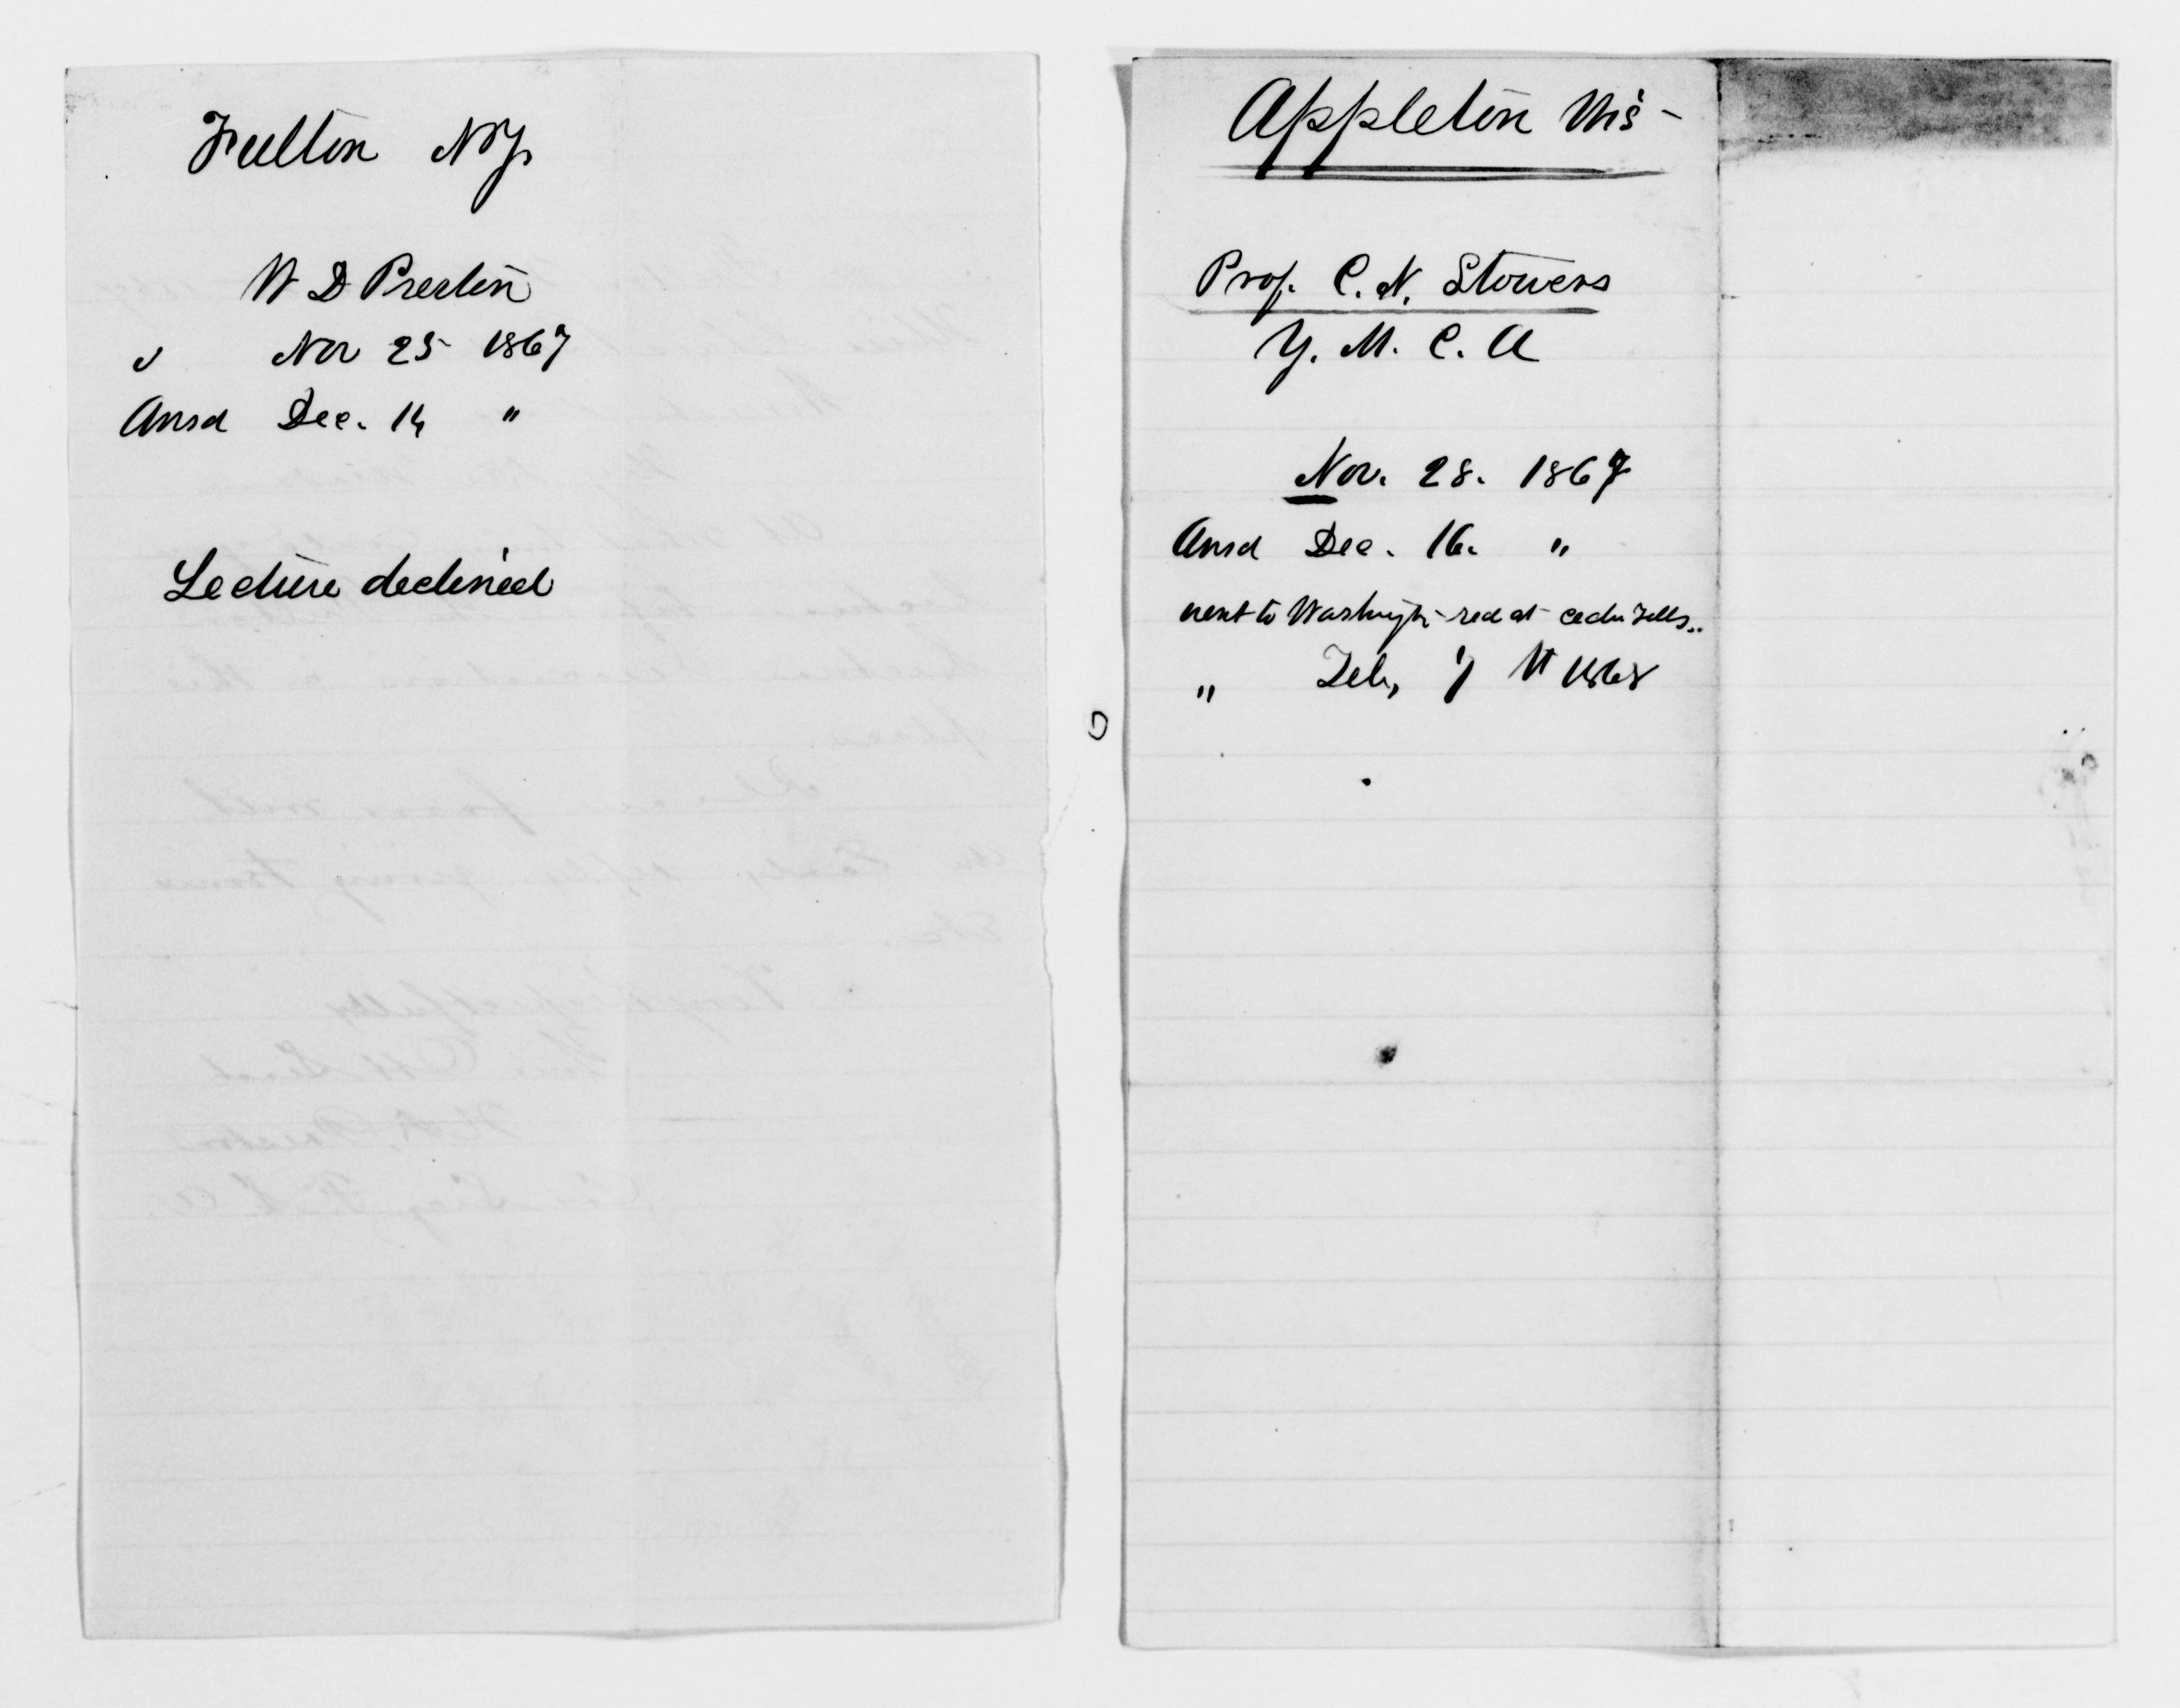 Fulton NY.
W D Preston
Nov 25 1867
Ansd Dec. 14 "
Lecture declined
Appleton Wis -
Prof. C. N. Stowers
Y. M. C. A
Nov. 28. 1867
Ansd Dec. 16. "
went to Washingtn - recd at Cedar Falls..
" Feb, 1868